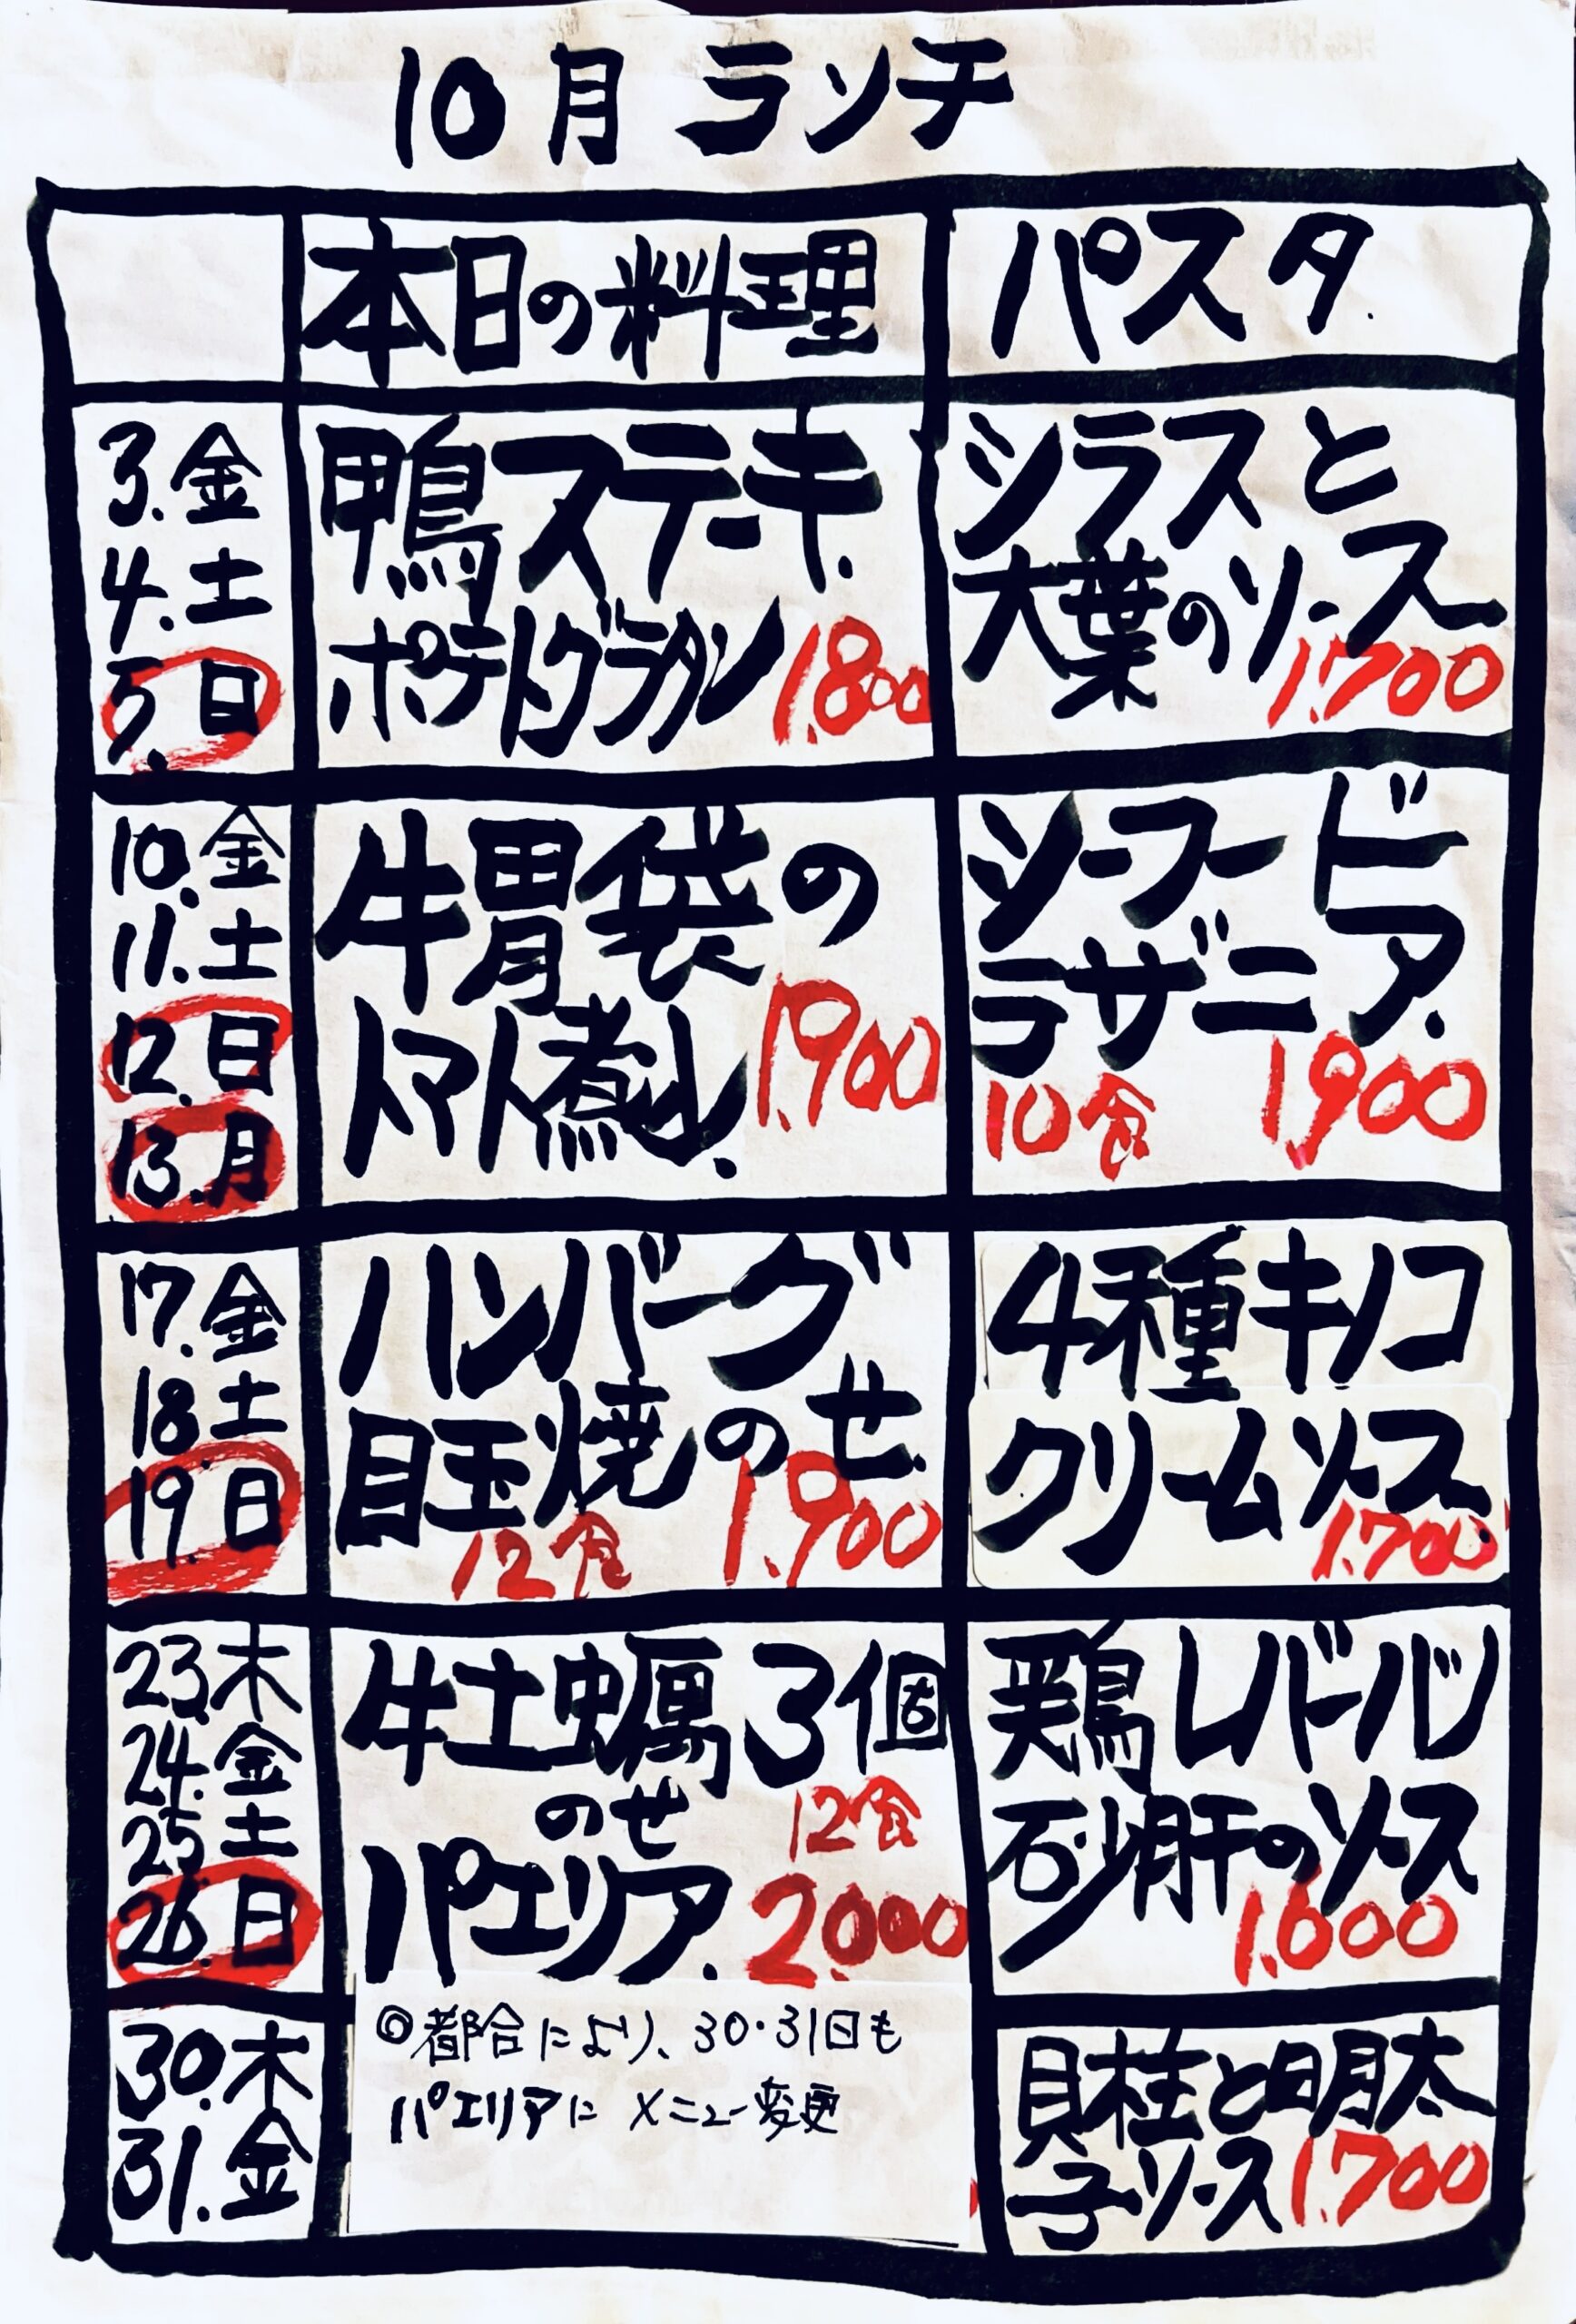 10月 ランチ
本日の料理
パスタ
3.金
4.土
5.日
鴨ステーキ.
ポテトグラタン 1.800
シラスと
大葉のソース
1.700
10.金
11.土
12.日
13.月
牛胃袋の
トマト煮込. 1.900
シーフード
ラザニア.
10食 1.900
17.金
18土
19.日
ハンバーグ
目玉焼のせ.
12食 1.900
4種キノコ
クリームソース.
1.700
23.木
24.金
25土
26.日
牡蠣3個
のせ 12食
パエリア. 2.000
鶏レバーハツ
砂肝のソース
1.600
30.木
31.金
◎都合により、30・31日も
パエリアに メニュー変更
貝柱と明太
子ソース 1.700